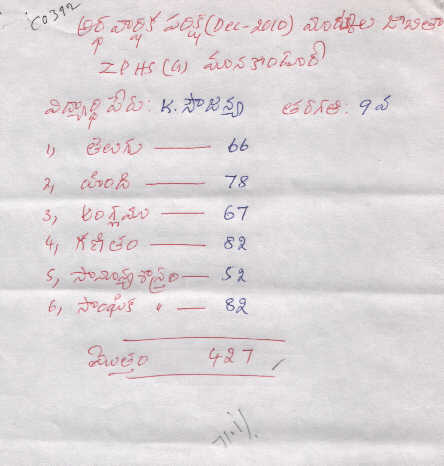 C0392
అర్ధ వార్షిక పరీక్ష (Dec-2010) మార్కుల జాబితా
ZPHS (G) మానకొండూర్
విద్యార్థి పేరు: K. సౌజన్య తరగతి: 9వ
1, తెలుగు — 66
2, హింది — 78
3, ఆంగ్లము — 67
4, గణితం — 82
5, సామాన్య శాస్త్రం — 52
6, సాంఘీక " — 82
మొత్తం 427
71.1%